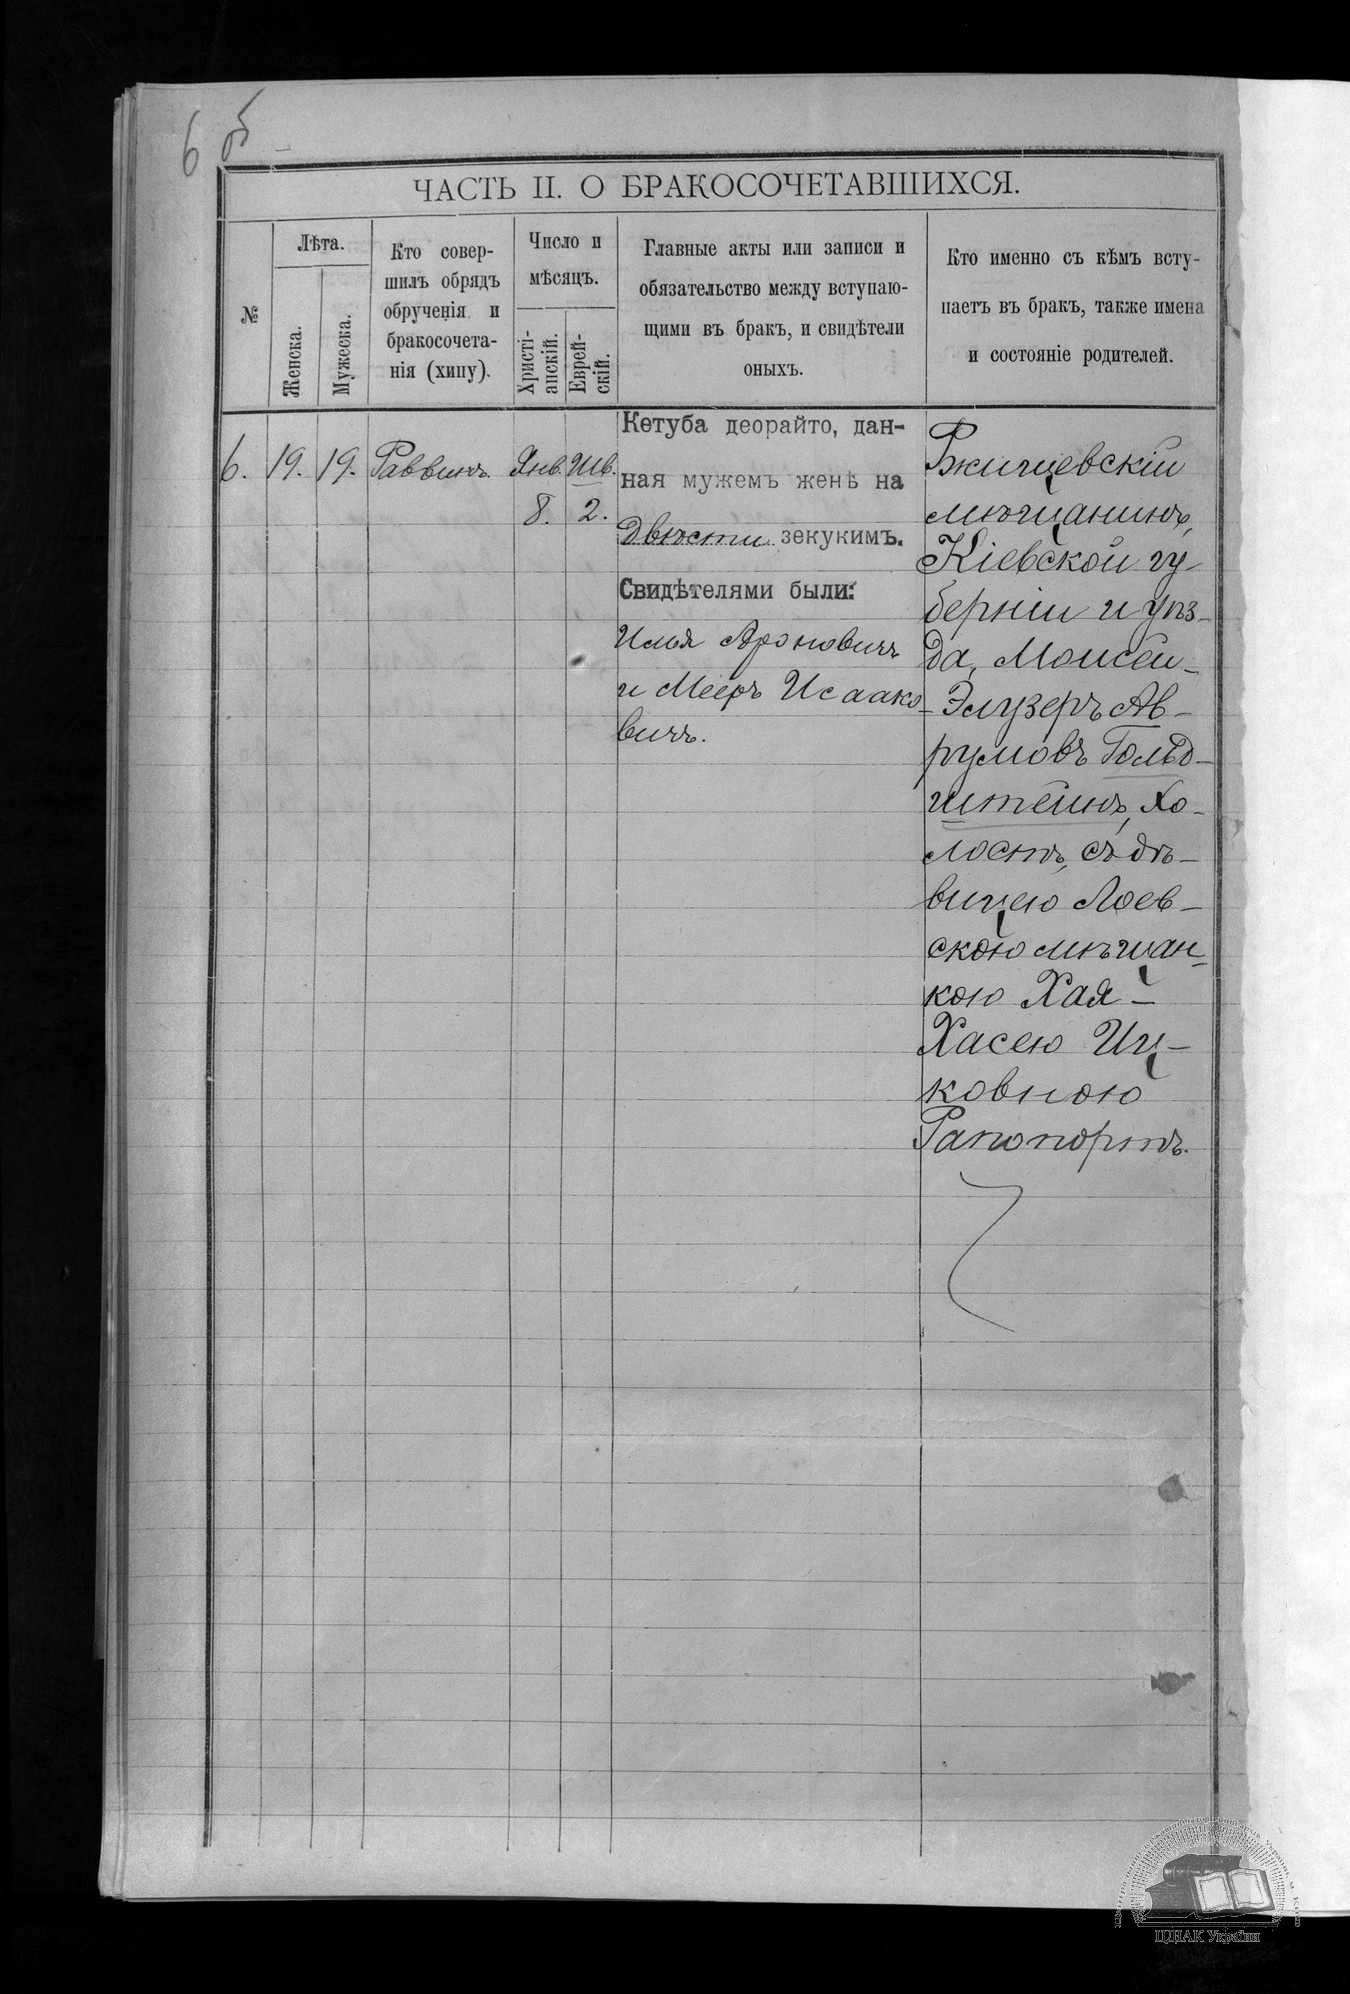 6 об
ЧАСТЬ II. О БРАКОСОЧЕТАВШИХСЯ.
№
Лѣта.
Женска.
Мужеска.
Кто совер-
шилъ обрядъ
обрученія и
бракосочета-
нія (хипу).
Число и
мѣсяцъ.
Христі-
анскій.
Еврей-
скій.
Главные акты или записи и
обязательство между вступаю-
щими въ бракъ, и свидѣтели
оныхъ.
Кто именно съ кѣмъ всту-
паетъ въ бракъ, также имена
и состояніе родителей.
6.
19.
19.
Раввинъ.
Янв.
8.
Шв.
2.
Кетуба деорайто, дан-
ная мужемъ женѣ на
Двѣсти зекукимъ.
Свидѣтелями были:
Илья Ароновичъ
и Мееръ Исаако-
вичъ.
Ржищевскій
мѣщанинъ,
Кіевской гу-
берніи и уѣз-
да, Моисей-
Элузеръ Ав-
румовъ Гольд-
штейнъ, хо-
лостъ, съ дѣ-
вицею Лоев-
скою мѣщан-
кою Хая-
Хасею Иц-
ковною
Рапопортъ.
ЦДІАК України